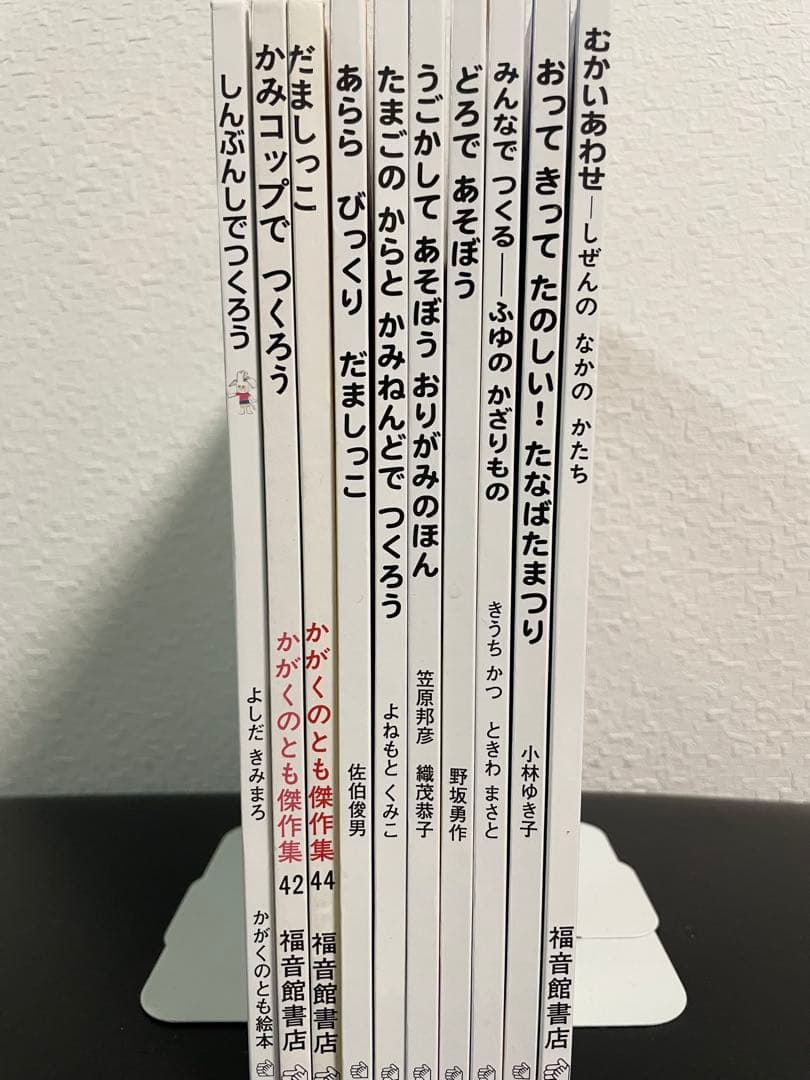 しんぶんしでつくろう
よしだ きみまろ
かがくのとも絵本
かみコップで つくろう
かがくのとも傑作集
42
福音館書店
だましっこ
かがくのとも傑作集
44
福音館書店
あらら びっくり だましっこ
佐伯俊男
たまごの からと かみねんどで つくろう
よねもと くみこ
うごかして あそぼう おりがみのほん
笠原邦彦 織茂恭子
どろで あそぼう
野坂勇作
みんなで つくる――ふゆの かざりもの
きうち かつ ときわ まさと
おって きって たのしい! たなばたまつり
小林ゆき子
むかいあわせ―しぜんの なかの かたち
福音館書店